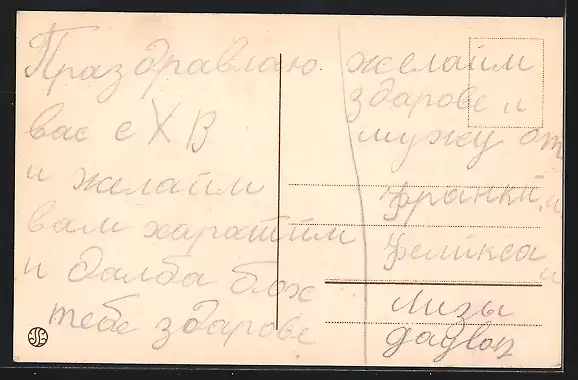 Праздравлаю
вас с ХВ
и желайм
вам харошим
и далба бох
тебе здарове
желайм
здарове и
мужу от
франки и
феликса и
Лизы